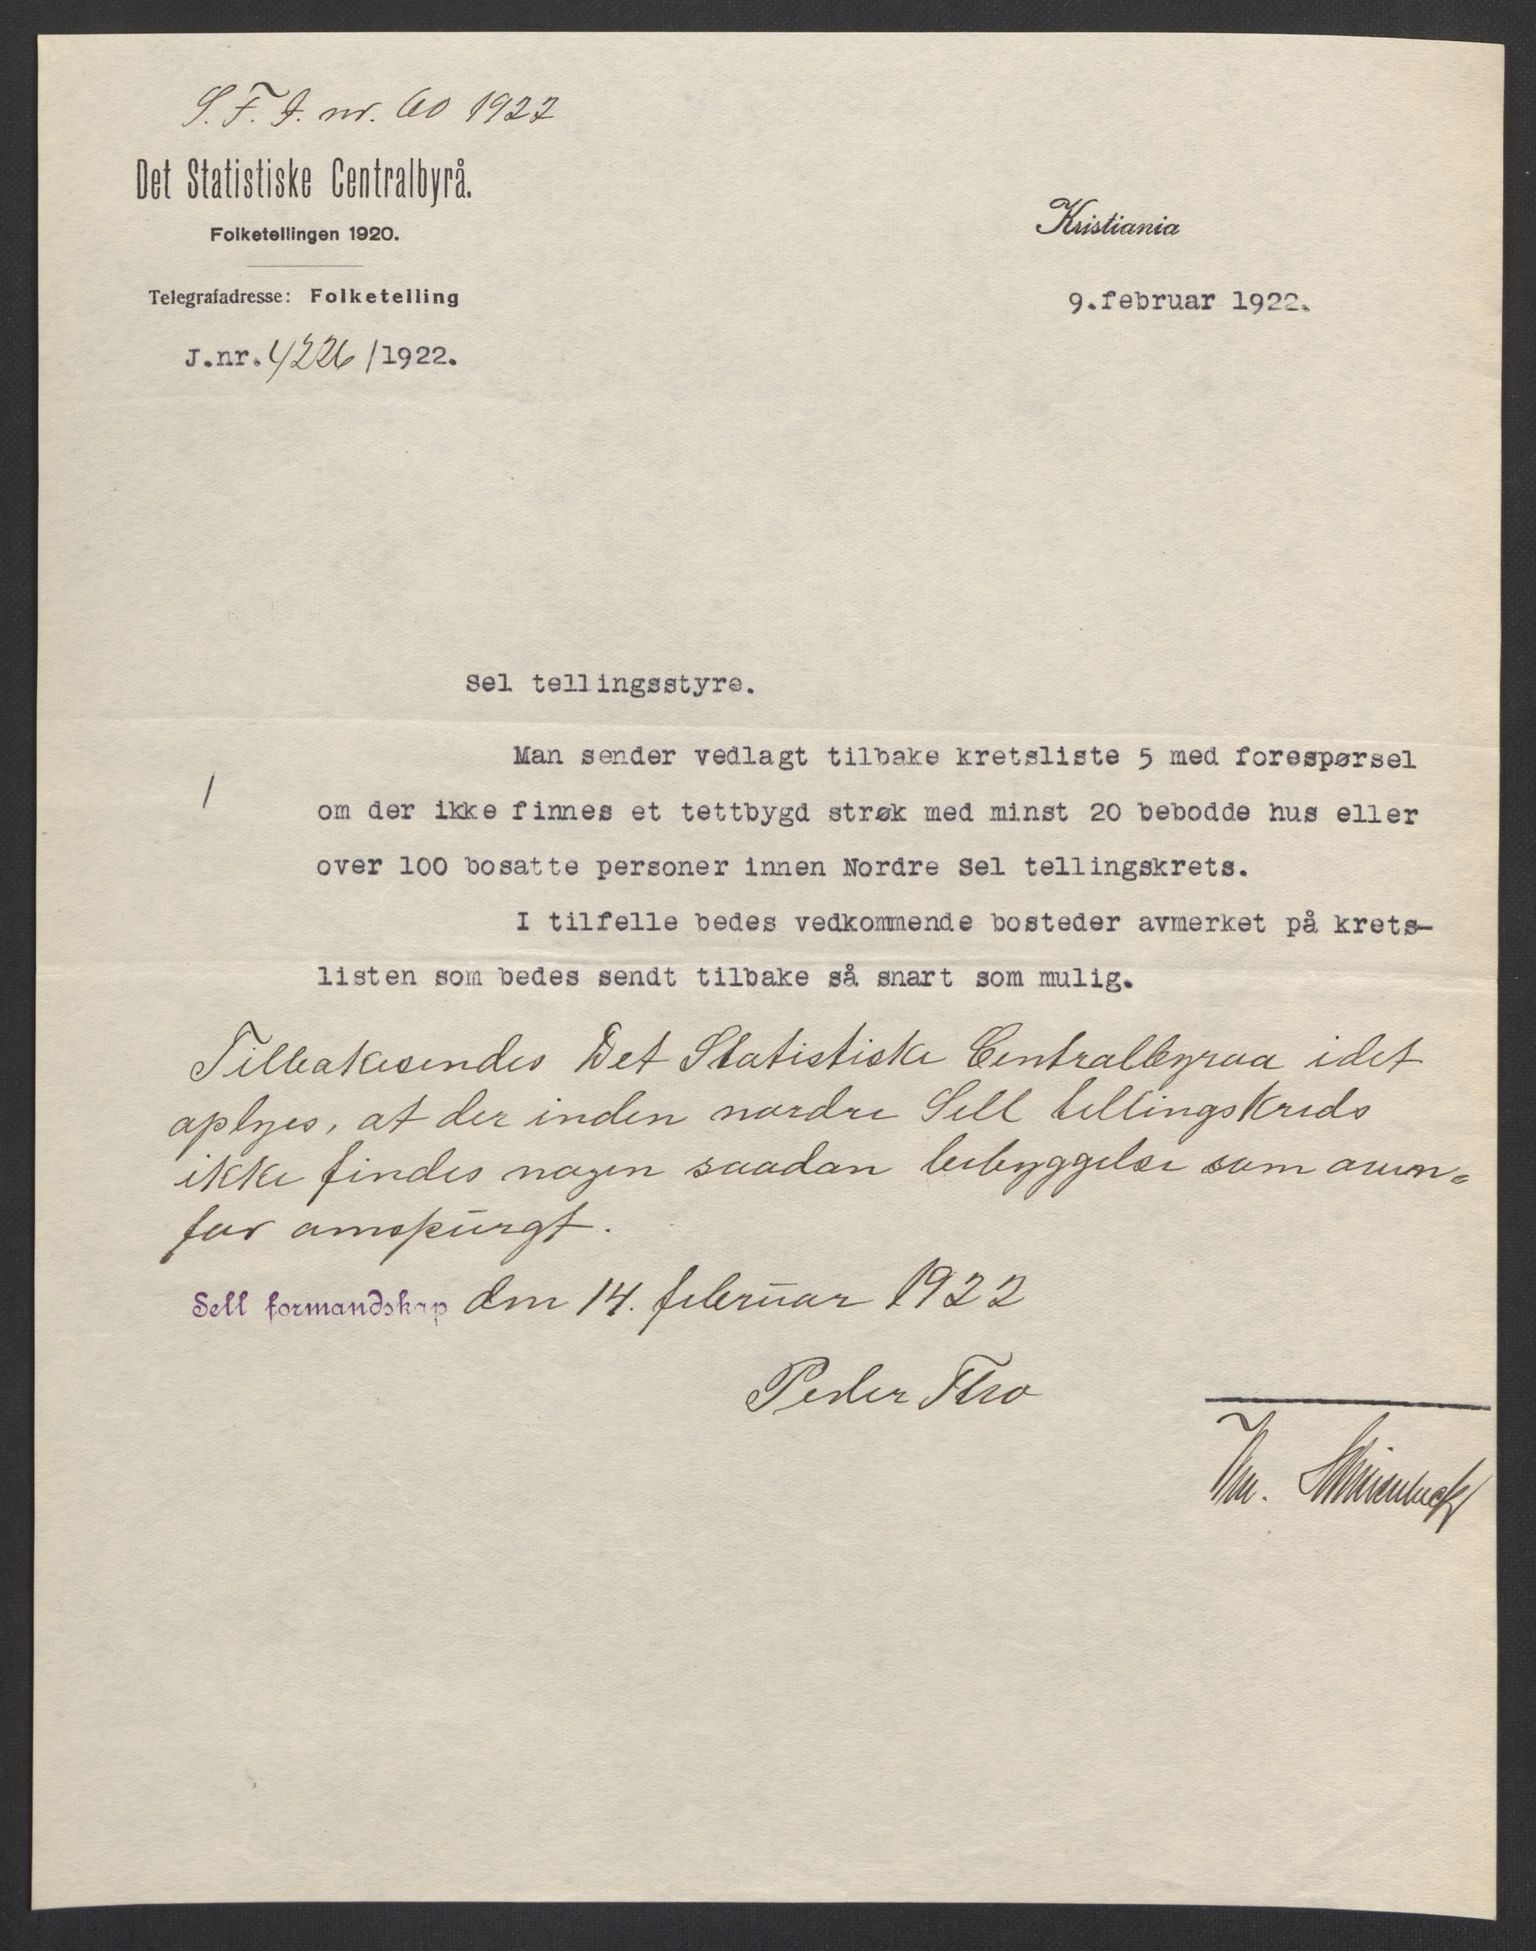 S. F. J. nr. 60 1922
Det Statistiske Centralbyrå.
Folketellingen 1920.
Telegrafadresse: Folketelling
J.nr. 4226/1922.
Kristiania
9.februar 1922.
Sel tellingsstyre.
Man sender vedlagt tilbake kretsliste 5 med forespørsel
1
om der ikke finnes et tettbygd strøk med minst 20 bebodde hus eller
over 100 bosatte personer innen Nordre Sel tellingskrets.
I tilfelle bedes vedkommende bosteder avmerket på krets-
listen som bedes sendt tilbake så snart som mulig.
Tilbakesendes Det Statistiske Centralbyraa idet
oplyses, at der inden nordre Sell tellingskreds
ikke findes nogen saadan bebyggelse som oven-
for omspurgt.
Sell formandskap den 14. februar 1922
Peder